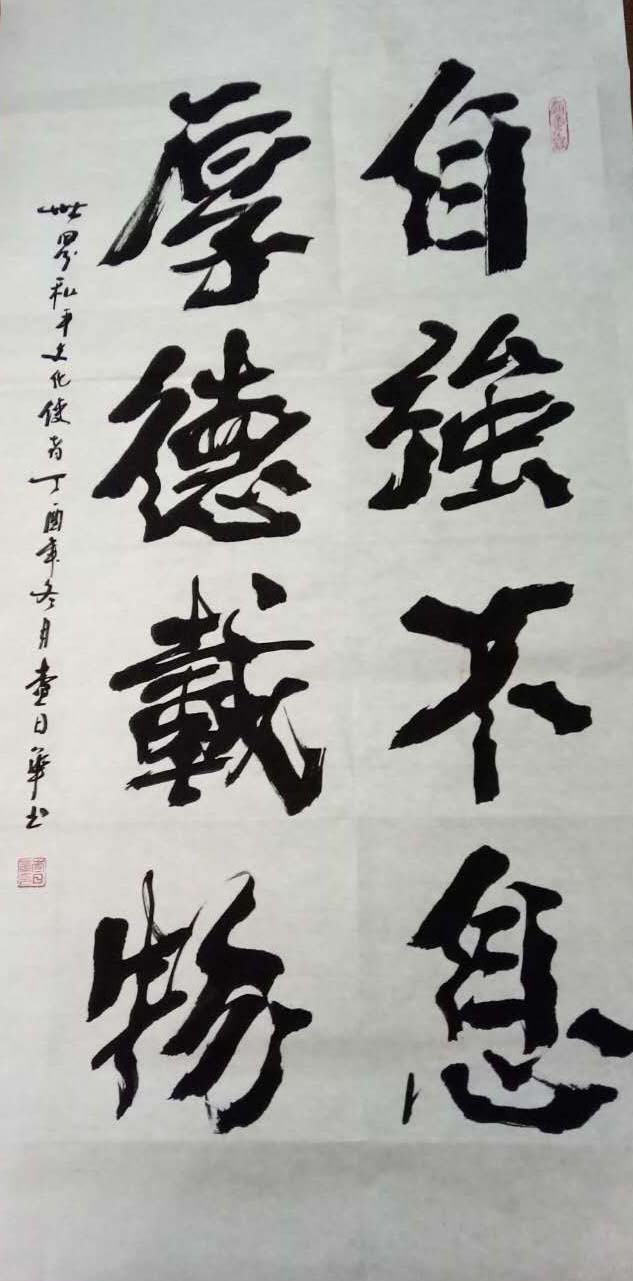 自強不息
厚德載物
世界和平文化使者丁酉年冬月查日華书